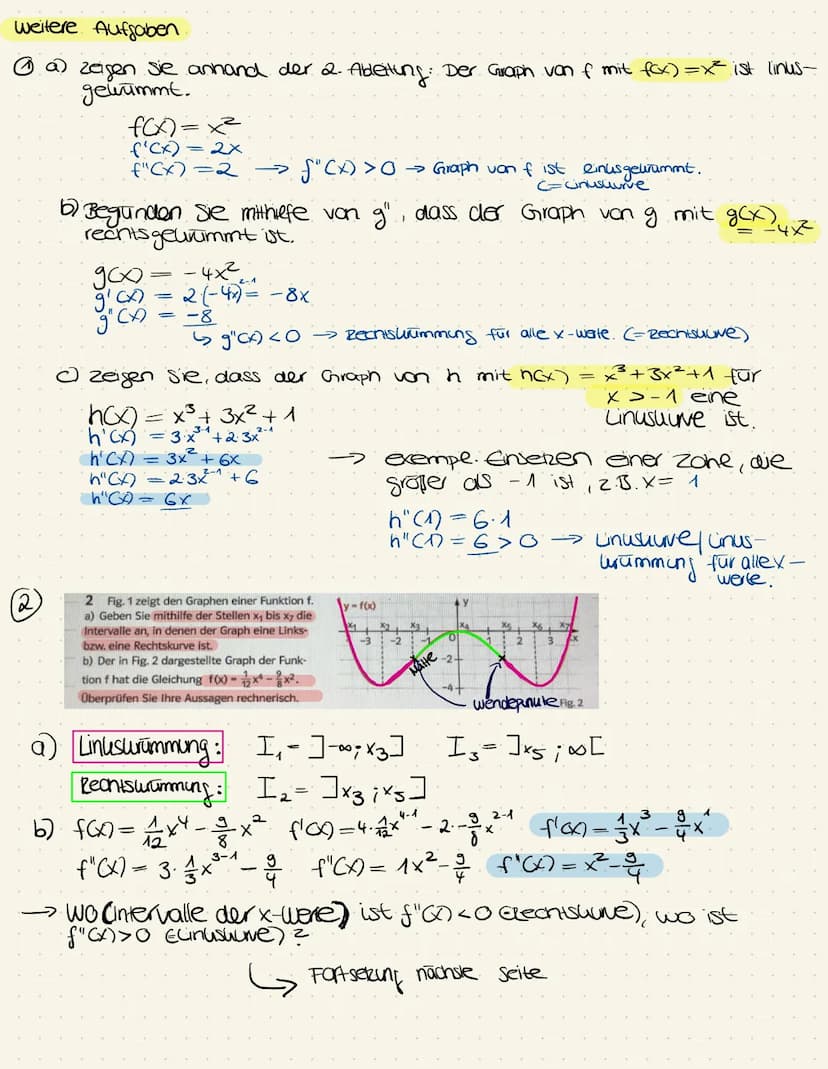 Weitere Aufgaben
① a) Zeigen Sie anhand der 2. Ableitung: Der Graph von f mit f(x) = x² ist links-
gekrümmt.
f(x) = x²
f'(x) = 2x
f"(x) = 2 → f"(x) > 0 → Graph von f ist linksgekrümmt.
(= Linkskurve
b) Begründen Sie mithilfe von g", dass der Graph von g mit g(x)
= -4x²
rechtsgekrümmt ist.
g(x) = -4x²
g'(x) = 2(-4x)²⁻¹ = -8x
g"(x) = -8
↳ g"(x) < 0 → Rechtskrümmung für alle x-Werte. (= Rechtskurve)
c) Zeigen Sie, dass der Graph von h mit h(x) = x³ + 3x² + 1 für
x > -1 eine
Linkskurve ist.
h(x) = x³ + 3x² + 1
h'(x) = 3·x³⁻¹ + 2·3x²⁻¹
h'(x) = 3x² + 6x
h"(x) = 2·3x²⁻¹ + 6
h"(x) = 6x
→ exempl. Einsetzen einer Zahl, die
größer als -1 ist, z.B. x = 1
h"(1) = 6·1
h"(1) = 6 > 0 → Linkskurve/Links-
krümmung für alle x-
Werte.
②
2 Fig. 1 zeigt den Graphen einer Funktion f.
a) Geben Sie mithilfe der Stellen x₁ bis x₇ die
Intervalle an, in denen der Graph eine Links-
bzw. eine Rechtskurve ist.
b) Der in Fig. 2 dargestellte Graph der Funk-
tion f hat die Gleichung f(x) = 1/12 x⁴ - 9/8 x².
Überprüfen Sie Ihre Aussagen rechnerisch.
y = f(x)
y
x₁ x₂ x₃ x₄ x₅ x₆ x₇
-3 -2 -1 0 1 2 3 x
-2
-4
Mitte
Wendepunkte
Fig. 2
a) Linkskrümmung: I₁ = ]-∞; x₃] I₃ = ]x₅ ; ∞[
Rechtskrümmung: I₂ = ]x₃ ; x₅]
b) f(x) = 1/12 x⁴ - 9/8 x² f'(x) = 4·1/12 x⁴⁻¹ - 2·-9/8 x²⁻¹ f'(x) = 1/3 x³ - 9/4 x¹
f"(x) = 3·1/3 x³⁻¹ - 9/4 f"(x) = 1x² - 9/4 f"(x) = x² - 9/4
→ Wo (Intervalle der x-Werte) ist f"(x) < 0 (Rechtskurve), wo ist
f"(x) > 0 (Linkskurve)?
↳ Fortsetzung nächste Seite